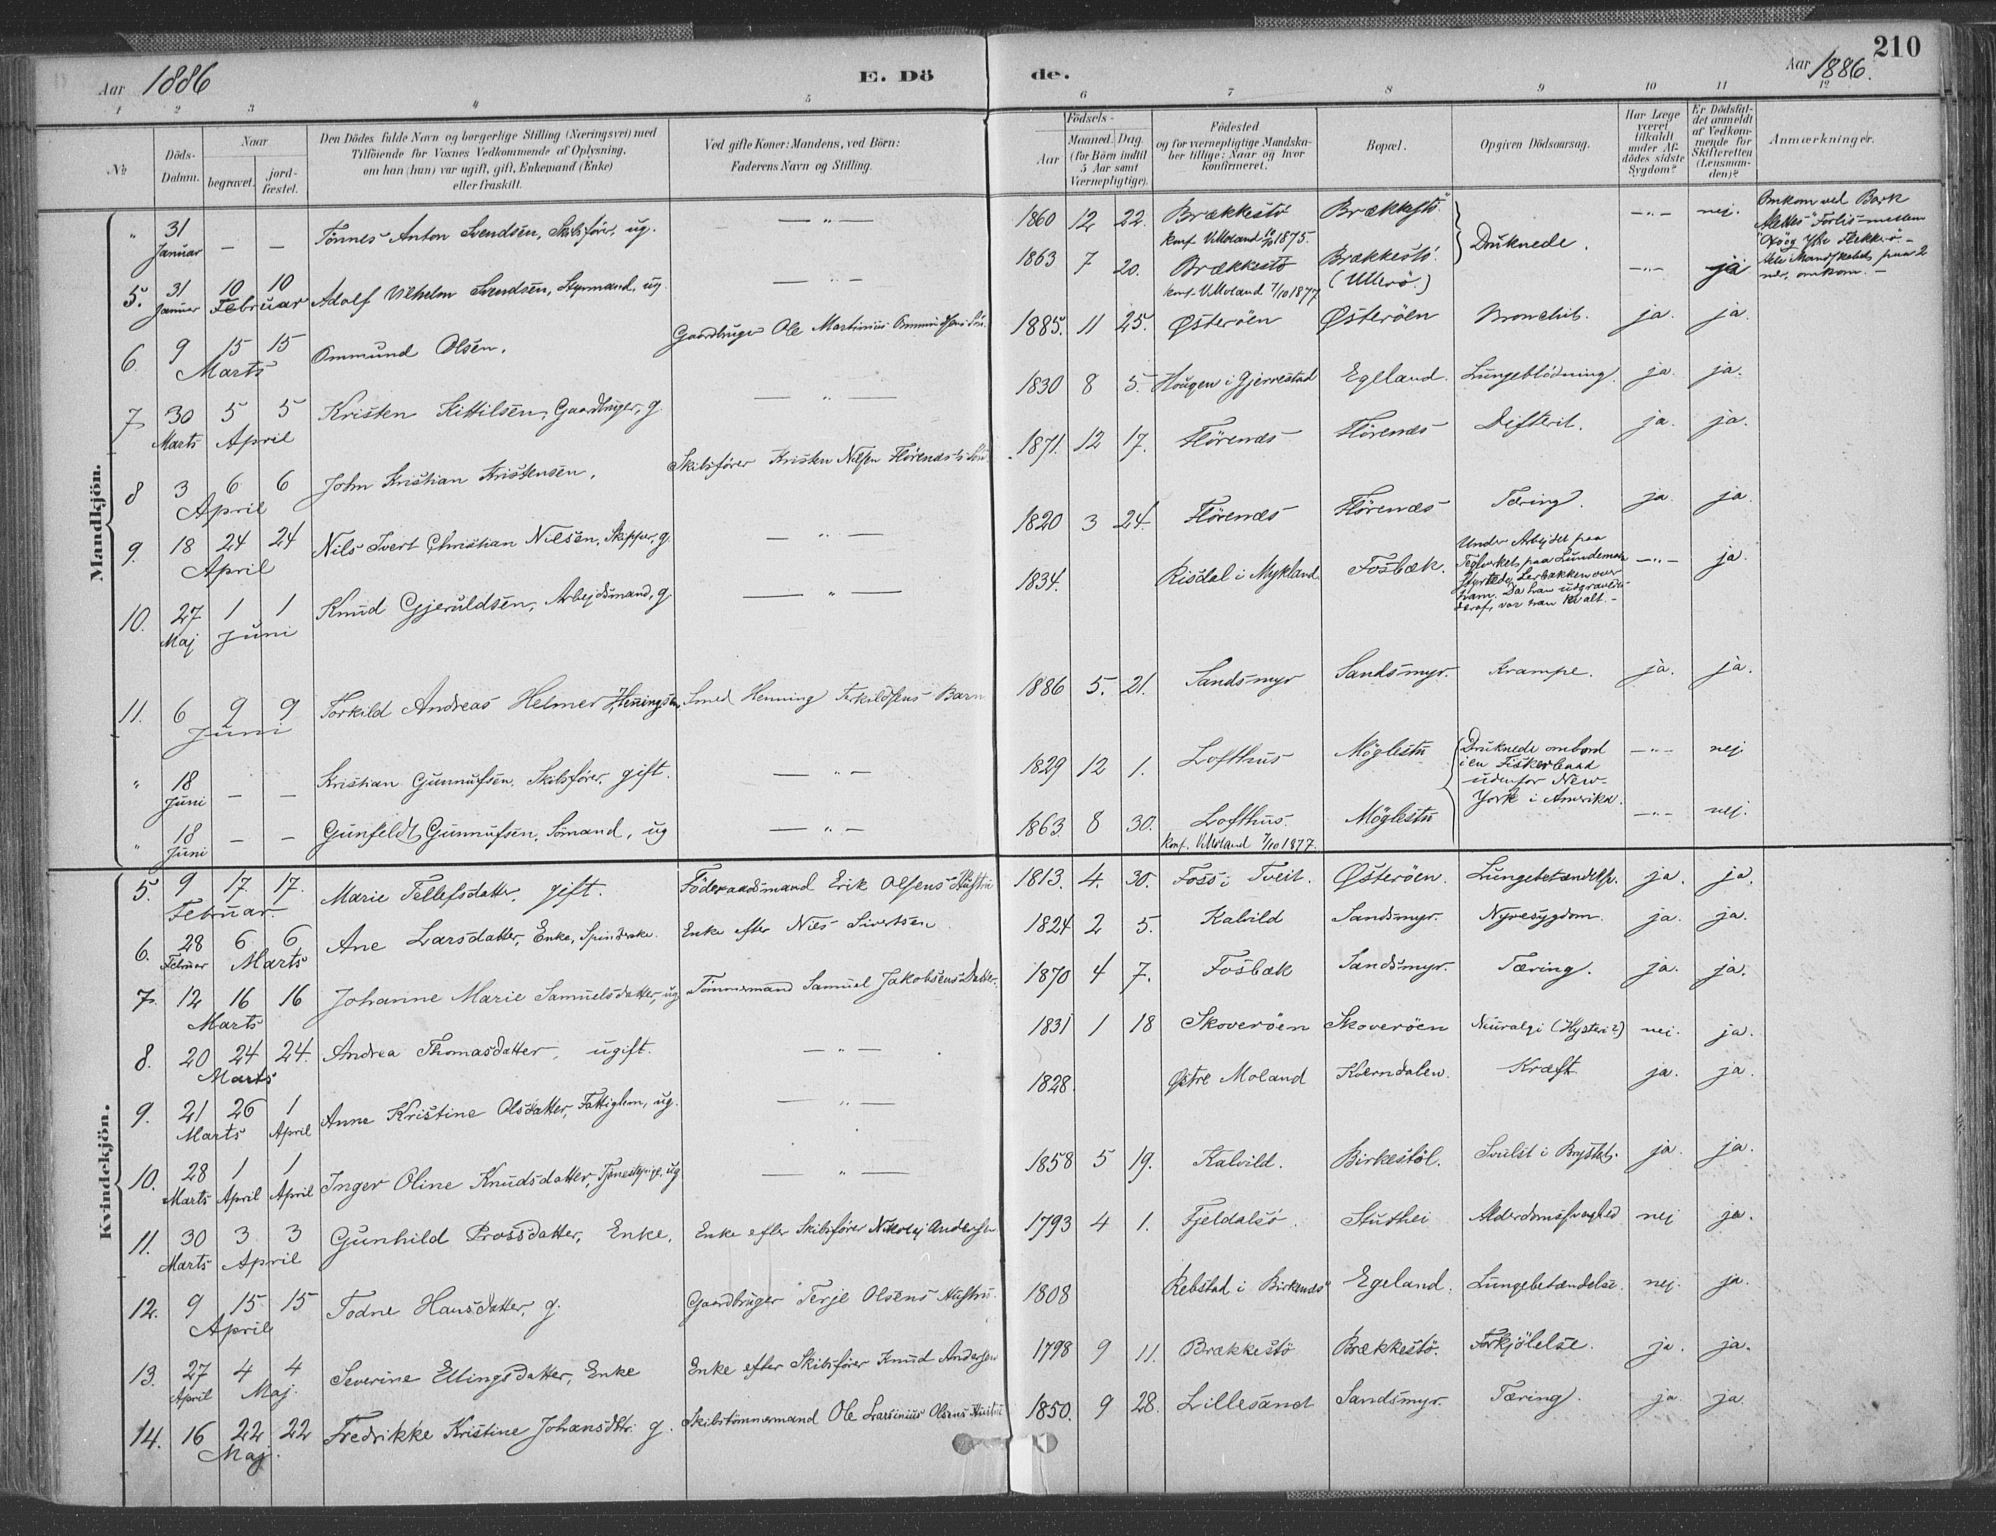 210
Aar 1886
E. Dö
de.
Aar 1886.
1 2 3 4 5 6 7 8 9 10 11 12
№
Döds-Datum.
Naar
begravet.
jord-fæstet.
Den Dödes fulde Navn og borgerlige Stilling (Næringsvei) med
Tilföiende for Voxnes Vedkommende af Oplysning,
om han (hun) var ugift, gift, Enkemand (Enke)
eller fraskilt.
Ved gifte Koner: Mandens, ved Börn:
Faderens Navn og Stilling.
Födsels-
Aar
Maaned. Dag.
(for Börn indtil
5 Aar samt
Værnepligtige).
Födested
og for værnepligtige Mandska-
ber tillige: Naar og hvor
konfirmeret.
Bopæl.
Opgiven Dödsaarsag.
Har Læge
været
tilkaldt
under Af-
dödes sidste
Sygdom?
Er Dödsfal-
det anmeldt
af Vedkom-
mende for
Skifteretten
(Lensman-
den)?
Anmærkninger.
Mandkjön.
" 31 Januar — — Tönnes Anton Svendsen, Skibsförer, ug. — " — 1860 12 22. Brækkestö Brækkestö — " — nej.
konf. V.Moland 1875.
5. 31 Januar 10 10 Februar Adolf Vilhelm Svendsen, Styrmand, ug. — " — 1863 7 20. Brækkestö Brækkestö. (Ulverö.) Druknede. — " — ja
konf. V.Moland 7/10 1877
Omkom ved Bark
Forlis mellem
Oxöog Yhr Flekkerö. —
Mandskabet paa 2
nær, omkom. —
6 9 15 15 Marts Ommund Olsen. Gaardbruger Ole Martinius Ommundsens Sön. 1885. 11 25. Østeröen Østeröen Bronchit. ja. ja.
7 30 Marts 5 5 April Kristen Kittilsen, Gaardbruger, g. — " — 1830 8 5. Haugen i Gjerrestad Egeland. Lungeblödning. ja. ja.
8 3 6 6 April John Kristian Kristensen. Skibsförer Kristen Nilsen Flörenæs's Sön 1871. 12 17. Flörenæs Flörenæs Difterit. ja. ja.
9. 18 24 24 April Nils Ivert Christian Nilsen, Skipper, g. — " — 1820 3 24. Flörenæs Flörenæs Tæring. ja. ja.
10. 27 Maj 1 1 Juni Knud Gjeruldsen, Arbejdsmand, g. — " — 1834. Risdal i Mykland Fosbæk. — " — ja.
Under Arbejdet paa
Teglverket paa Lundemoen
styrtede Lerbakken over
ham. Da han udgravedes
deraf, var han kvalt. —
11. 6 9 9 Juni Torkild Andreas Helmer Henningsen, Smed Henning Terkildsens Barn 1886 5. 21. Sandsmyr Sandsmyr. Krampe. ja. ja.
" 18 Juni — — Kristian Gunnufsen, Skibsförer, gift. — " — 1829 12 1. Lofthus Möglestu — " — nej
Druknede ombord
i en Fiskerbaad
udenfor New-
York i Amerika.
" 18 Juni — — Gunfeldt Gunnufsen, Sömand, ug — " — 1863 8 30. Lofthus. Möglestu — " — nej.
konf. V.Moland 7/10 1877.
Kvindekjön.
5. 9 17 17. Februar. Marie Tellefsdatter, gift. Föderaadsmand Erik Olsens Hustru 1813. 4. 30. Foss i Tveit. Østeröen. Lungebetændelse. ja. ja.
6. 28 Februar 6 6 Marts Ane Larsdatter, Enke, Spinderske. Enke efter Nils Sivertsen. 1824 2 5. Kalvild Sandsmyr. Nyresygdom. ja. ja.
7. 12 16 16 Marts Johanne Marie Samuelsdatter, ug Tömmermand Samuel Jakobsens Datter. 1870 4 7. Fosbæk Sandsmyr. Tæring. ja. ja.
8. 20 24 24. Marts Andrea Thomasdatter, ugift. — " — 1831 1 18 Skoveröen Skoveröen Neuralgi (Hysteri?) nei. ja.
9. 21 26 Marts 1 April Anne Kristine Olsdatter, Fattiglem, ug. — " — 1828. Østre Moland Kverndalen. Kræft ja. ja.
10. 28 Marts 1 April 1 April Inger Oline Knudsdatter, Tjenestepige, ug — " — 1858 5 19. Kalvild. Birkestöl. Svulst i Brystet. ja. ja.
11. 30 Marts 3 3 April Gunhild Prossdatter, Enke. Enke efter Skibsförer Nikolaj Andersen 1793 4 1. Fjeldalsö. Stuthei Alderdomssvaghed nej ja.
12. 9 15 15 April Todne Hansdatter, g. Gaardbruger Terje Olsens Hustru. 1808 Rebstad i Birkenæs Egeland. Lungebetændelse. nej. ja.
13. 27 April 4 4 Maj. Severine Ellingsdatter, Enke Enke efter Skibsförer Knud Andersen 1798 9 11. Brækkestö Brækkestö. Forkjölelse. ja. ja.
14. 16 22 22 Maj. Fredrikke Kristine Johansdtr. g. Skibstömmermand Ole Larsinius Olsens Hustru 1850. 9 28. Lillesand Sandsmyr. Tæring. ja ja